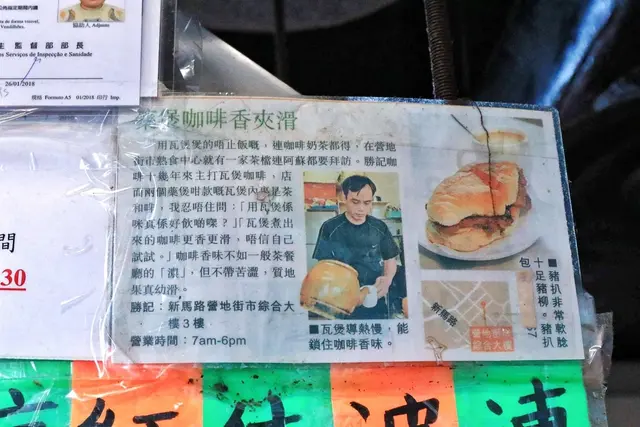 協助人 Adjunto
生監督部部長
os Serviços de Inspecção e Sanidade
26/01/2018
格紙 Formato A5 01/2018 印行 Imp.
間
30
藥煲咖啡香夾滑
用瓦煲煲的唔止飯嘅,連咖啡奶茶都得,在營地
街市熟食中心就有一家茶檔連阿蘇都要拜訪。勝記咖
啡十幾年來主打瓦煲咖啡,店
面兩個藥煲咁款嘅瓦煲內就是茶
和啡,我忍唔住問:「用瓦煲係
味真係好飲啲㗎?」「瓦煲煮出
來的咖啡更香更滑,唔信自己
試試。」咖啡香味不如一般茶餐
廳的「濃」,但不帶苦澀,質地
果真幼滑。
勝記:新馬路營地街市綜合大
樓3樓
營業時間:7am-6pm
■瓦煲導熱慢,能
鎖住咖啡香味。
新馬路
營地街市
綜合大樓
■豬扒非常軟腍
十足豬柳。豬扒
包
紅